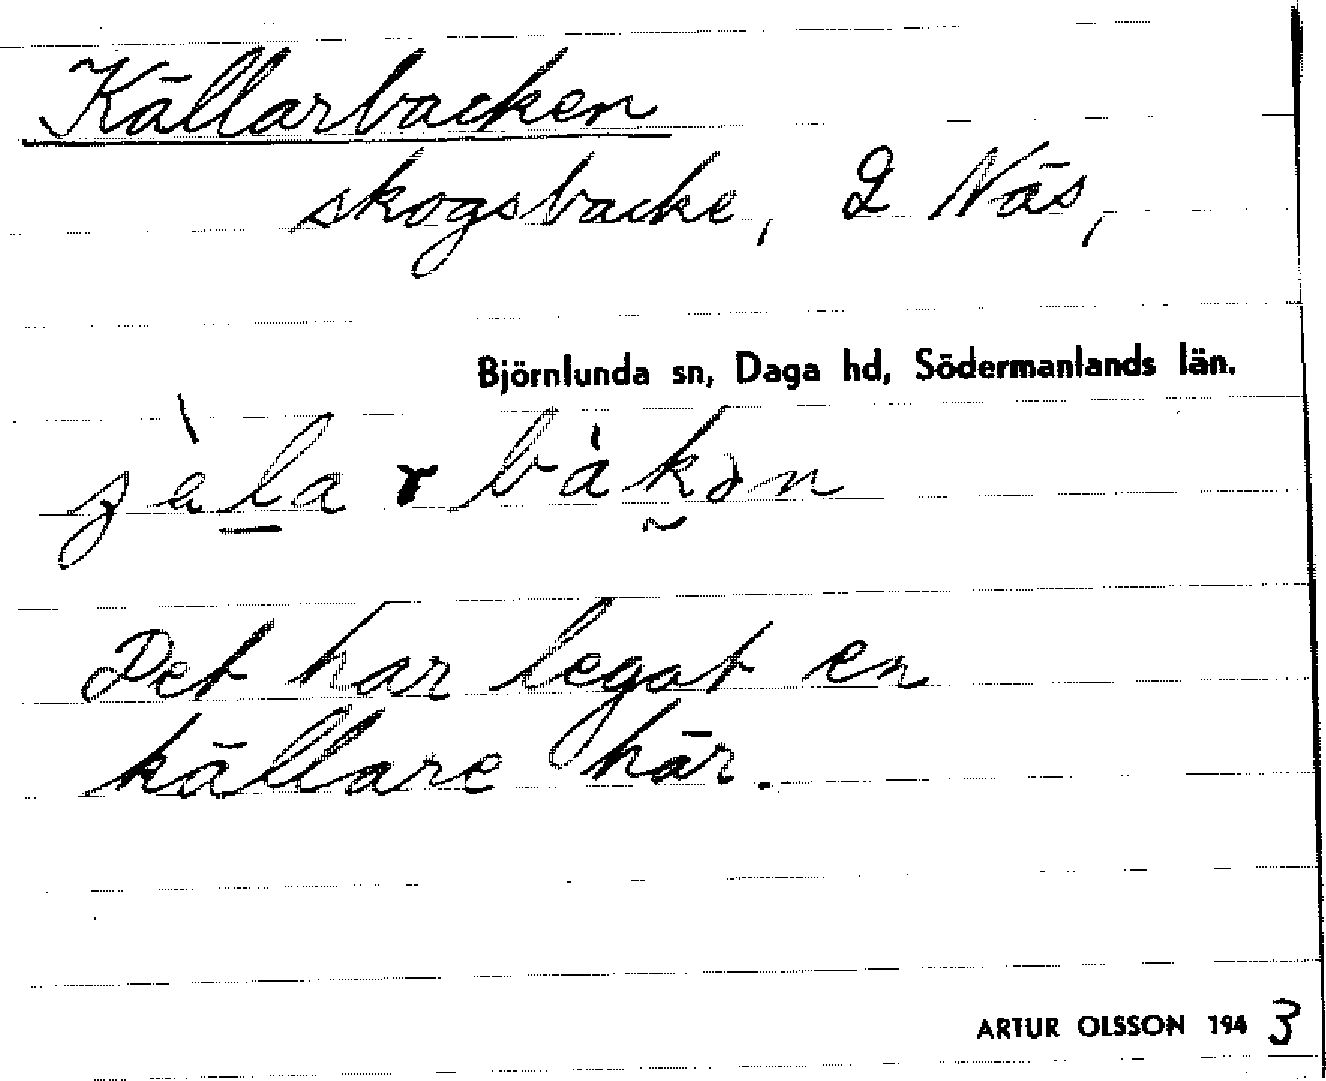 Källarbacken
skogsbacke, 2 Näs,
Björnlunda sn, Daga hd, Södermanlands län.
Det har legat en
källare här.
ARTUR OLSSON 1943